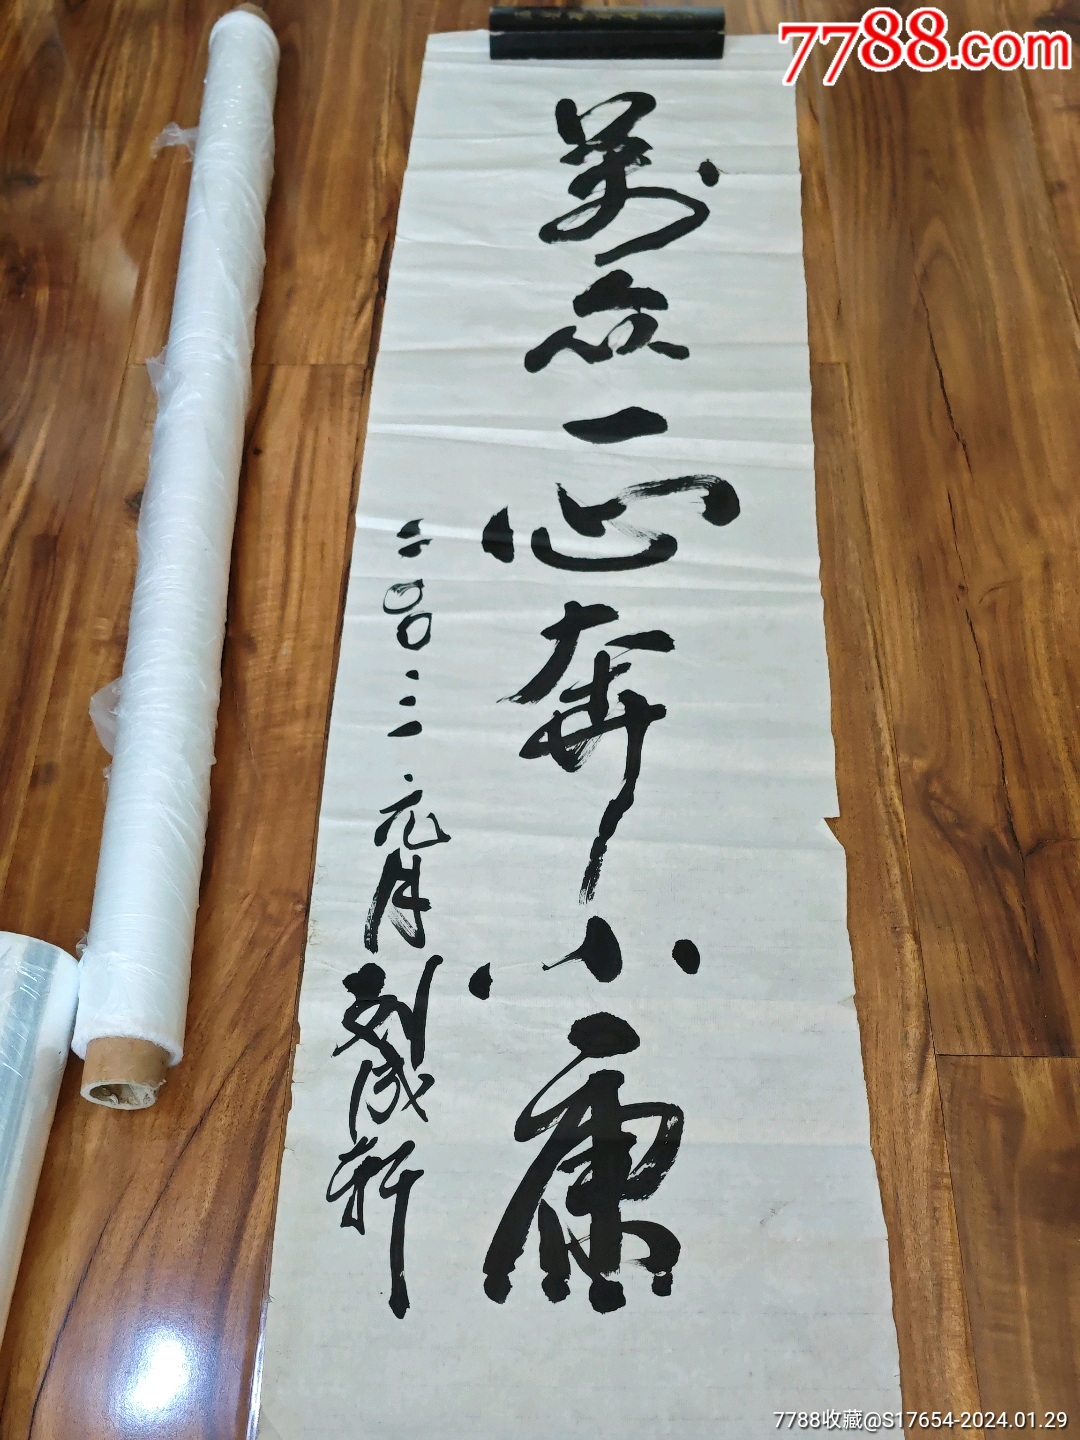 7788.com
萬众一心奔小康
二〇〇三元月刘成轩
7788收藏@S17654-2024.01.29